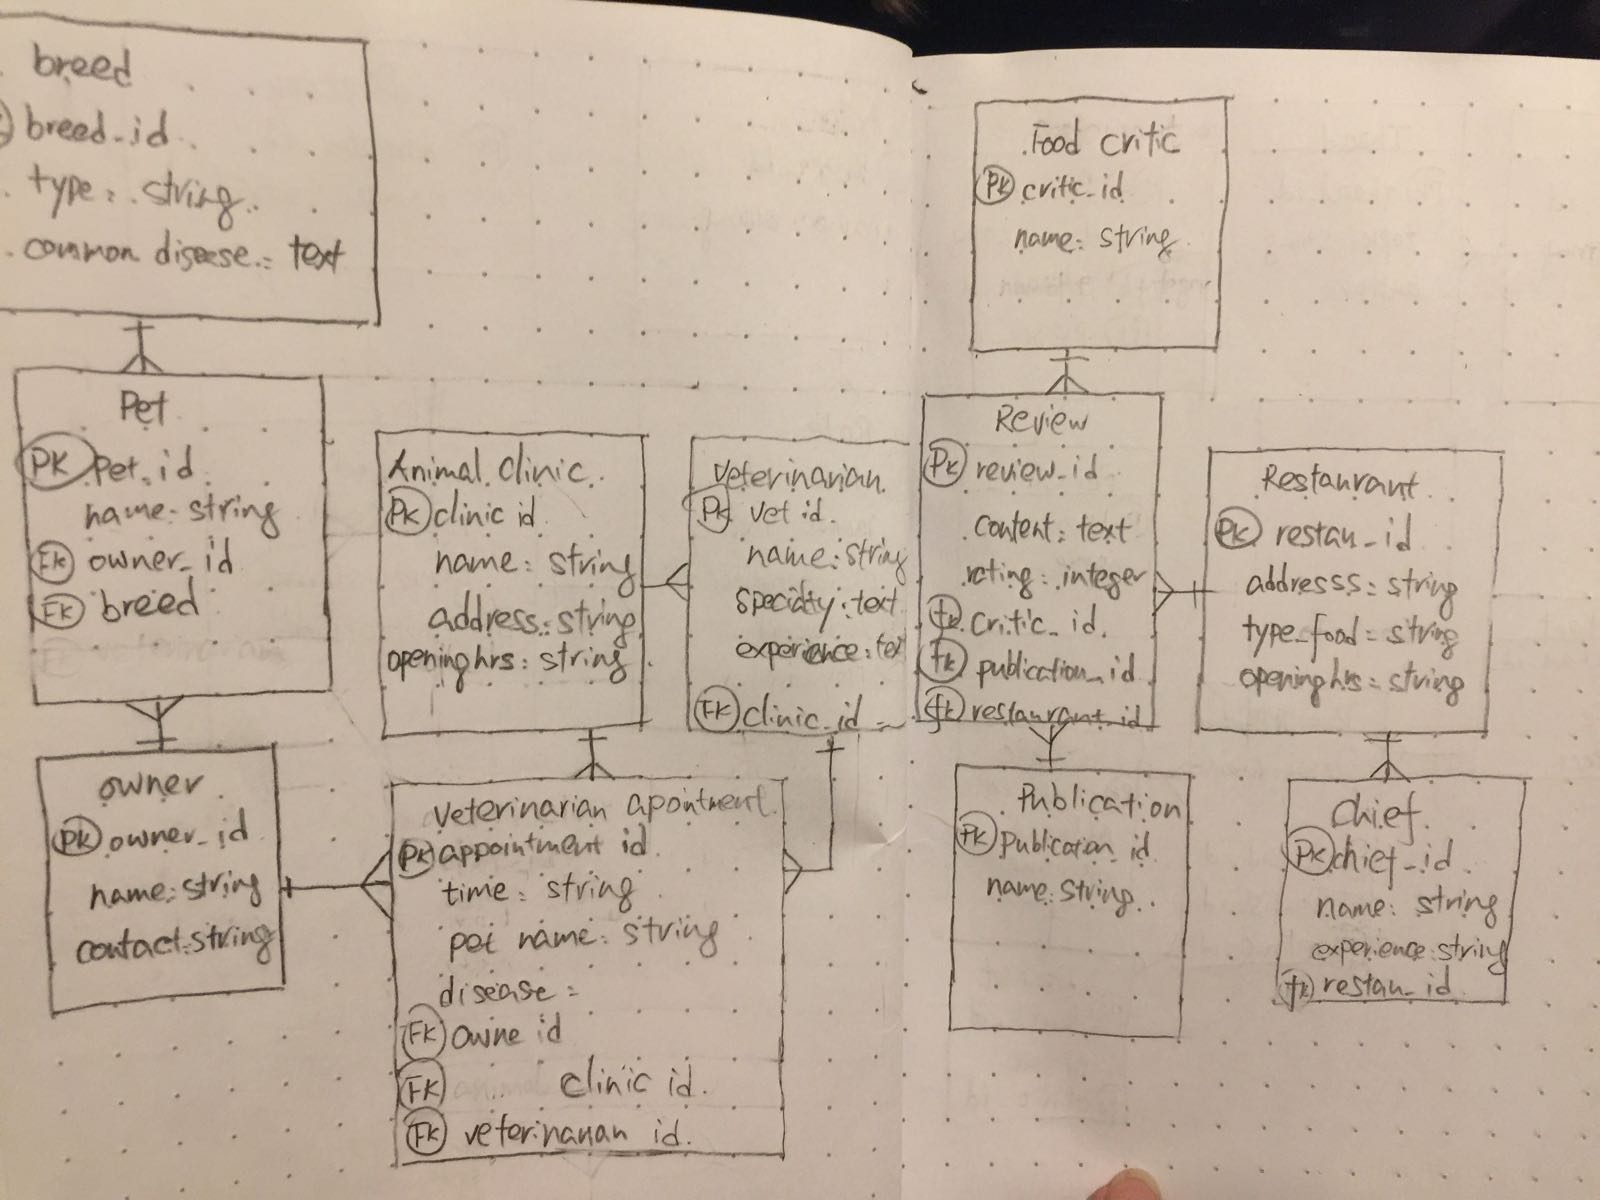 breed
breed_id
type: string
common disease: text
Pet
PK pet_id
name: string
FK owner_id
FK breed
owner
PK owner_id
name: string
contact: string
Animal clinic
PK clinic id
name: string
address: string
opening hrs: string
Veterinarian
PK vet id
name: string
specialty: text
experience: tex
FK clinic_id
Veterinarian apointment
PK appointment id
time: string
pet name: string
disease:
FK owne id
FK clinic id.
FK veterinarian id.
Food critic
PK critic_id
name: string
Review
PK review_id
content: text
rating: integer
fk critic_id
fk publication_id
fk restaurant_id
Restaurant
PK restau_id
addresss: string
type_food: string
opening hrs: string
Publication
PK publication id
name: string
Chief
PK chief_id
name: string
experience: string
fk restau_id